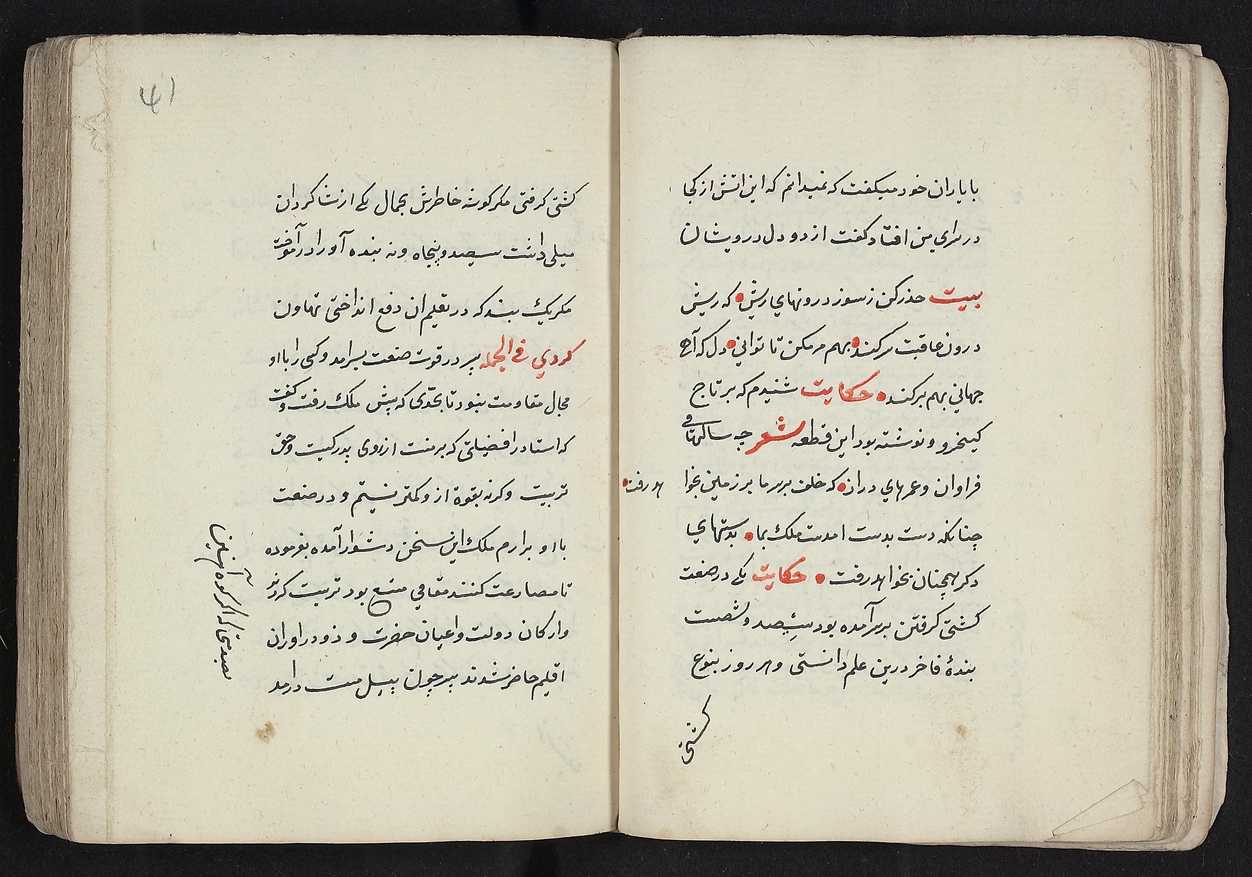 با یاران خود میکفت که نمیدانم که این اتش از کجا
در سرای من افتاد کفت از دود دل درویشان
بیت حذر کن ز سوز درونهای ریش که ریش
درون عاقبت سر کند بهم بر مکن تا توانی دل که آهی
جهانی بهم بر کند حکایت شنیدم که بر تاج
کیخسرو نوشته بود این قطعه شعر چه سالهای
فراوان و عمرهای دراز که خلق بر سر ما بر زمین بخواهد رفت
چنانکه دست بدست امدست ملک بما بدستهای
دکر همچنان بخواهد رفت حکایت یکی در صنعت
کشتی کرفتن بر سر آمده بود سیصد و شصت
بندۀ فاخر درین علم دانستی و هر روز بنوع
کشتی
۴۱
کشتی کرفتی مکر کوشه خاطرش بجمال یکی از شاکردان
میلی داشت سیصد و پنجاه و نه بنده آو را درآموخت
مکر یک بند که در تعلیم ان دفع انداختی تهاون
کردی فی الجمله پسر در قوت صنعت بسرامد و کسی را با او
مجال مقاومت نبود تا بحدی که پیش ملک رفت و کفت
که استاد را فضیلتی که بر منست از روی بزرکیست و حق
تربیت و کرنه بقوة از و کمتر نیستم و در صنعت
با او برابرم ملک این سخن دشوار آمده بفرموده
تا مصارعت کنند مقامی متسع بود ترتیب کردند
و ارکان دولت و اعیان حضرت و زوراوران
اقلیم حاضر شدند پسر چون پیل مست درامد
بصدمتی که اکر کوه آهنین